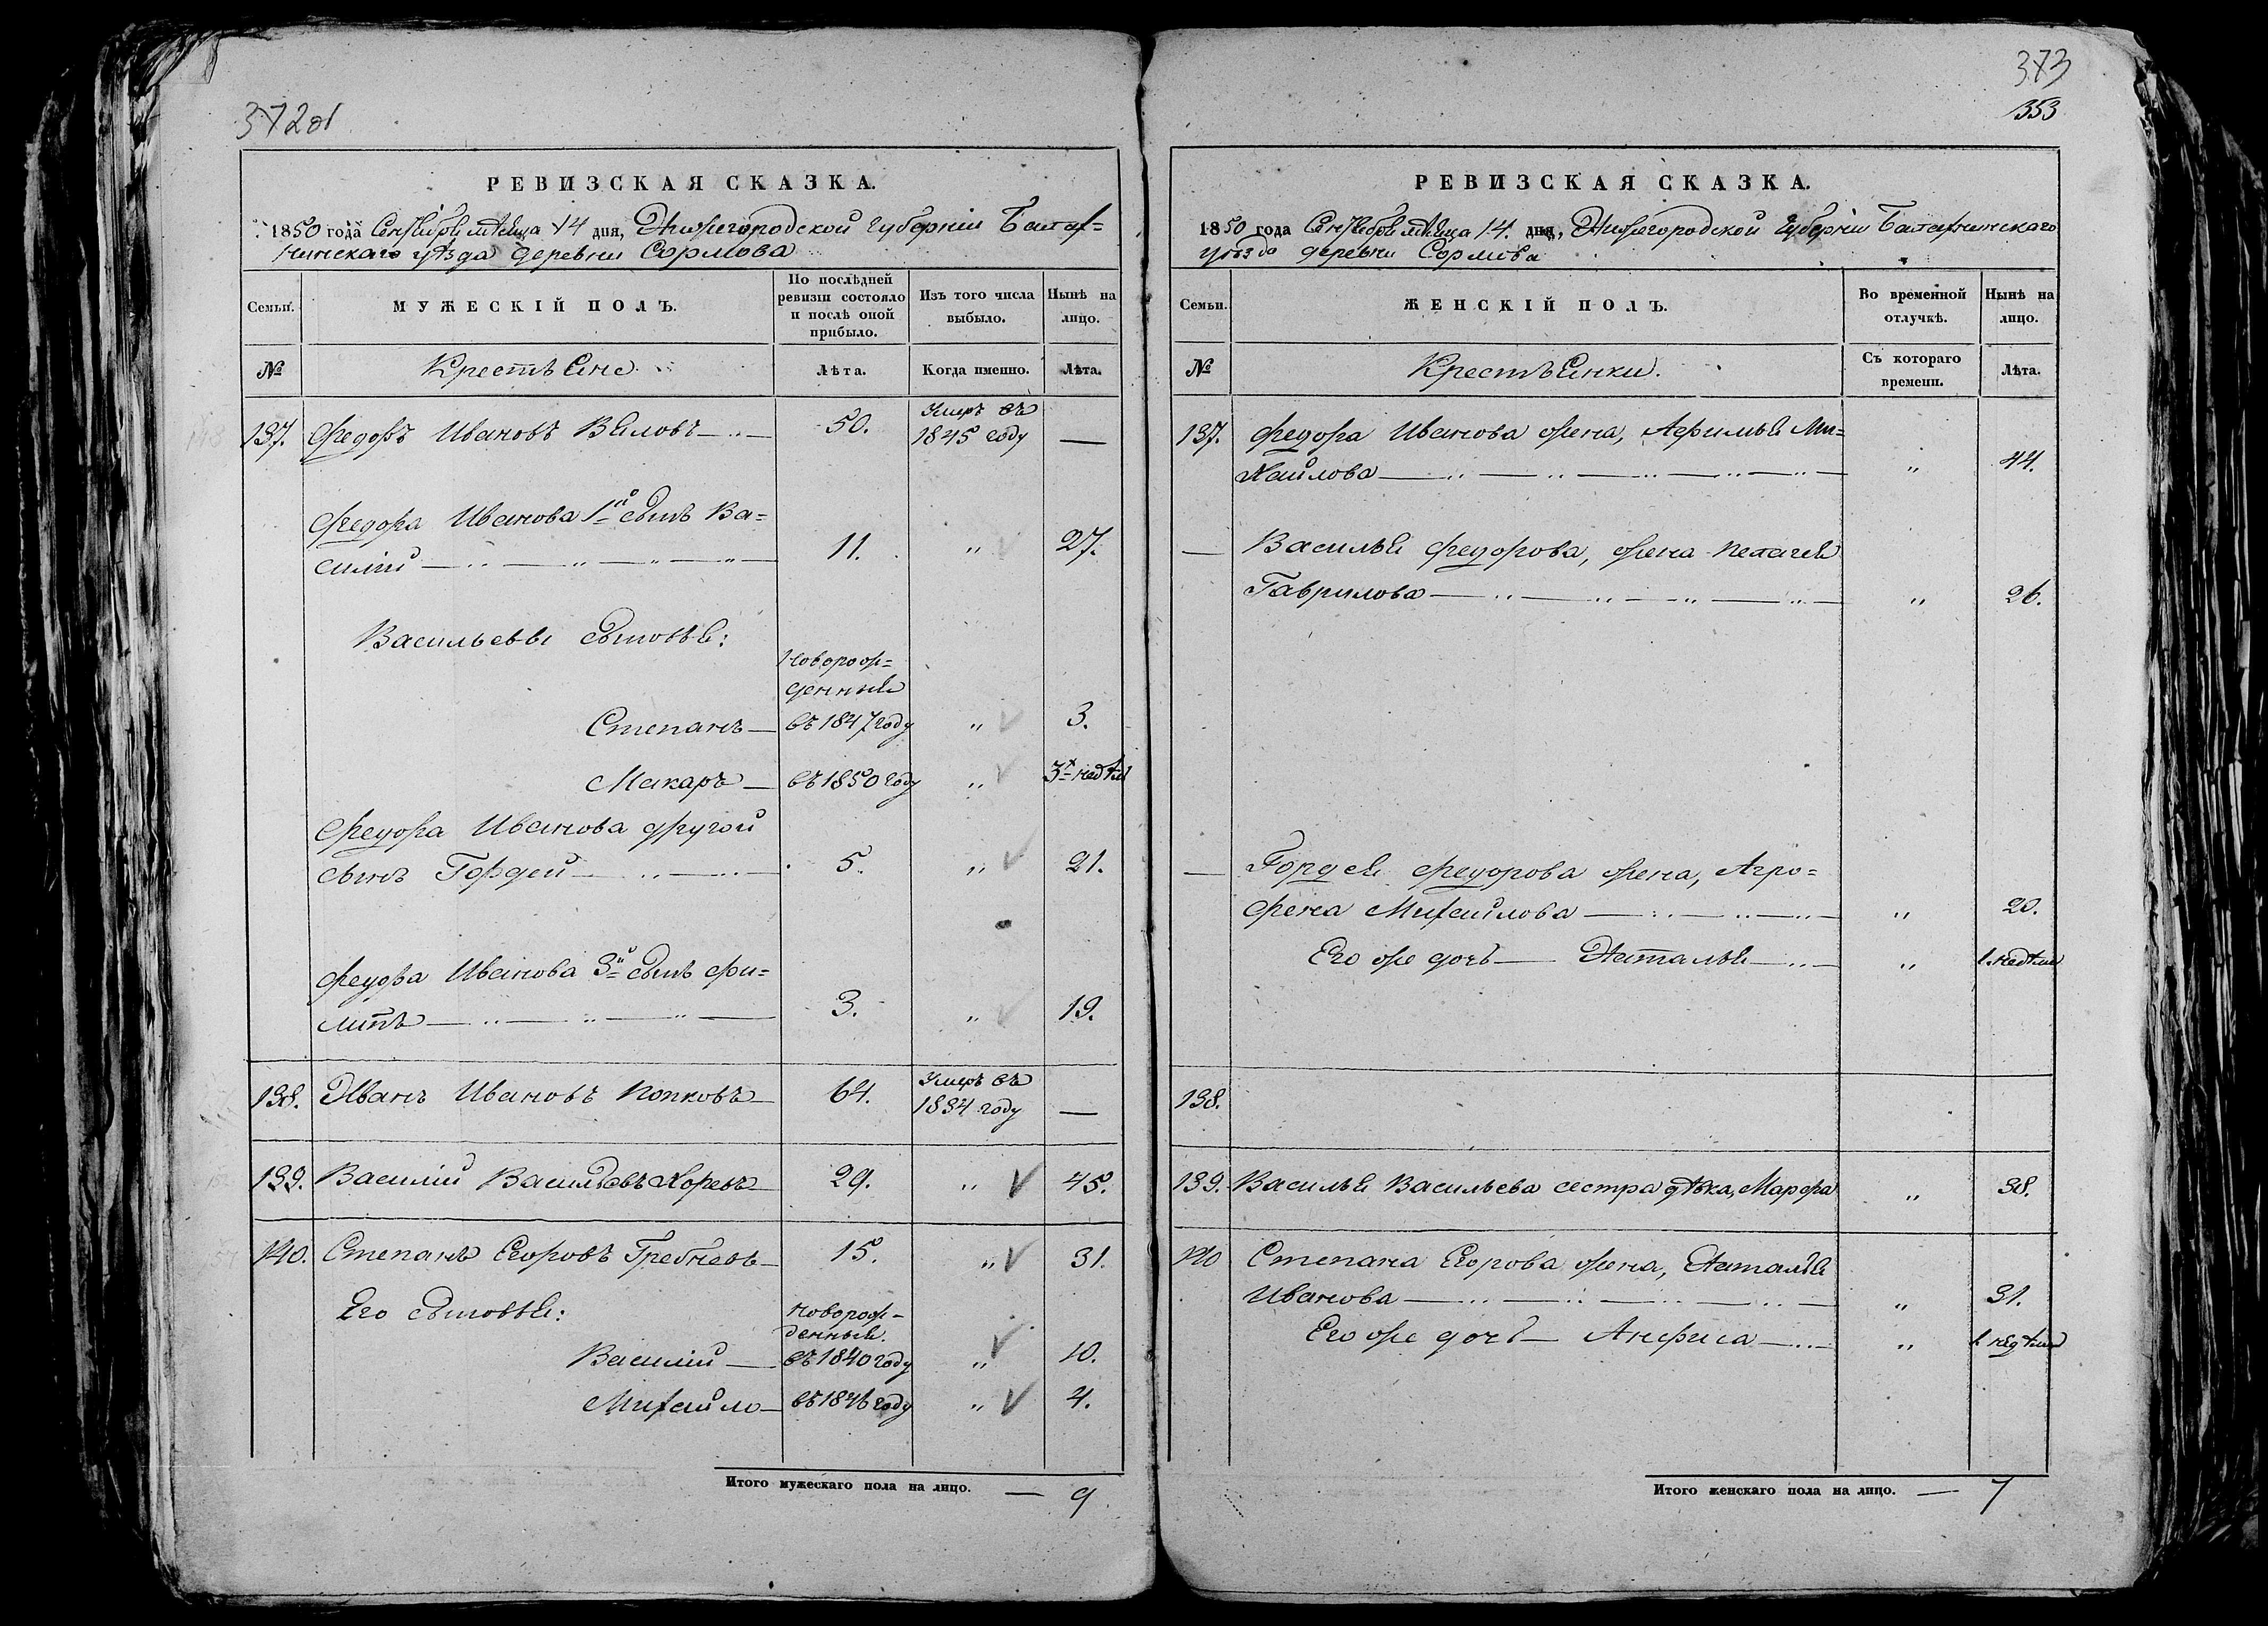 372об
РЕВИЗСКАЯ СКАЗКА.
1850 года Сентября мѣсяца 14 дня, Нижегородской губерніи Балах=
нинскаго уѣзда деревни Сормова
Семьи.
МУЖЕСКІЙ ПОЛЪ.
По послѣдней
ревизіи состояло
и послѣ оной
прибыло.
Изъ того числа
выбыло.
Нынѣ на
лицо.
№
Крестьяне
Лѣта.
Когда именно.
Лѣта.
137. Федоръ Ивановъ Вяловъ 50. Умеръ въ
1845 году —
Федора Иванова 1й сынъ Ва=
силій 11. " 27.
Васильевы сыновья:
Новорож=
денные
Степанъ — въ 1847 году " 3.
Макаръ — въ 1850 году " 3х недѣл
Федора Иванова другой
сынъ Гордей 5. " 21.
Федора Иванова 3й сынъ Фи=
липъ 3. " 19.
138. Иванъ Ивановъ Попковъ 64. Умеръ въ
1834 году —
139. Василій Васильевъ Хоревъ 29. " 45.
140. Степанъ Егоровъ Гребневъ 15. " 31.
Его сыновья:
Новорож=
денные
Василій — въ 1840 году " 10.
Михайло — въ 1846 году " 4.
Итого мужескаго пола на лицо. — 9
373
353
РЕВИЗСКАЯ СКАЗКА.
1850 года Сентября мѣсяца 14. дня, Нижегородской губерніи Балахнинскаго
уѣзда деревни Сормова
Семьи.
ЖЕНСКІЙ ПОЛЪ.
Во временной
отлучкѣ.
Нынѣ на
лицо.
№
Крестьянки.
Съ котораго
времени.
Лѣта.
137. Федора Иванова жена, Афимья Ми=
хайлова " 44.
— Василья Федорова, жена Пелагея
Гаврилова " 26.
— Гордея Федорова жена, Агро=
фена Михайлова " 20.
Его же дочь — Наталья " 1. недѣли
138.
139. Василья Васильева сестра дѣвка, Марфа " 38.
140 Степана Егорова жена, Наталья
Иванова " 31.
Его же дочь — Анфиса " 1. недѣли
Итого женскаго пола на лицо. — 7